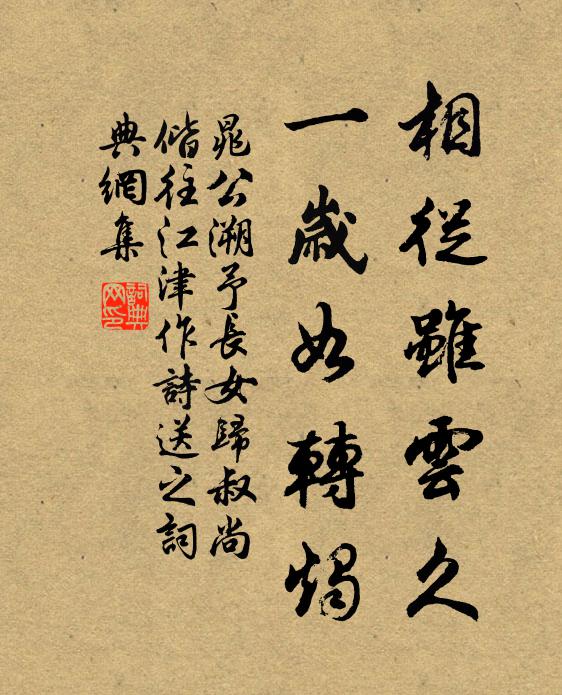 相從雖雲久
一歲如轉燭
晁公溯予長女歸叔尚
偕往江津作詩送之詞
典網集
詞典網印